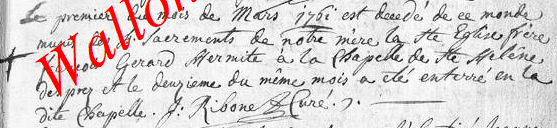 Le premier du mois de Mars 1761 est decedé de ce monde
muni des Sts Sacrements de notre mere la Ste Eglise frère
Gerard Hermite a la Chapelle de Ste Helène
des prez et le deuxieme du même mois a eté enterré en la
dite Chapelle. J: Ribone Curé.
Wallon